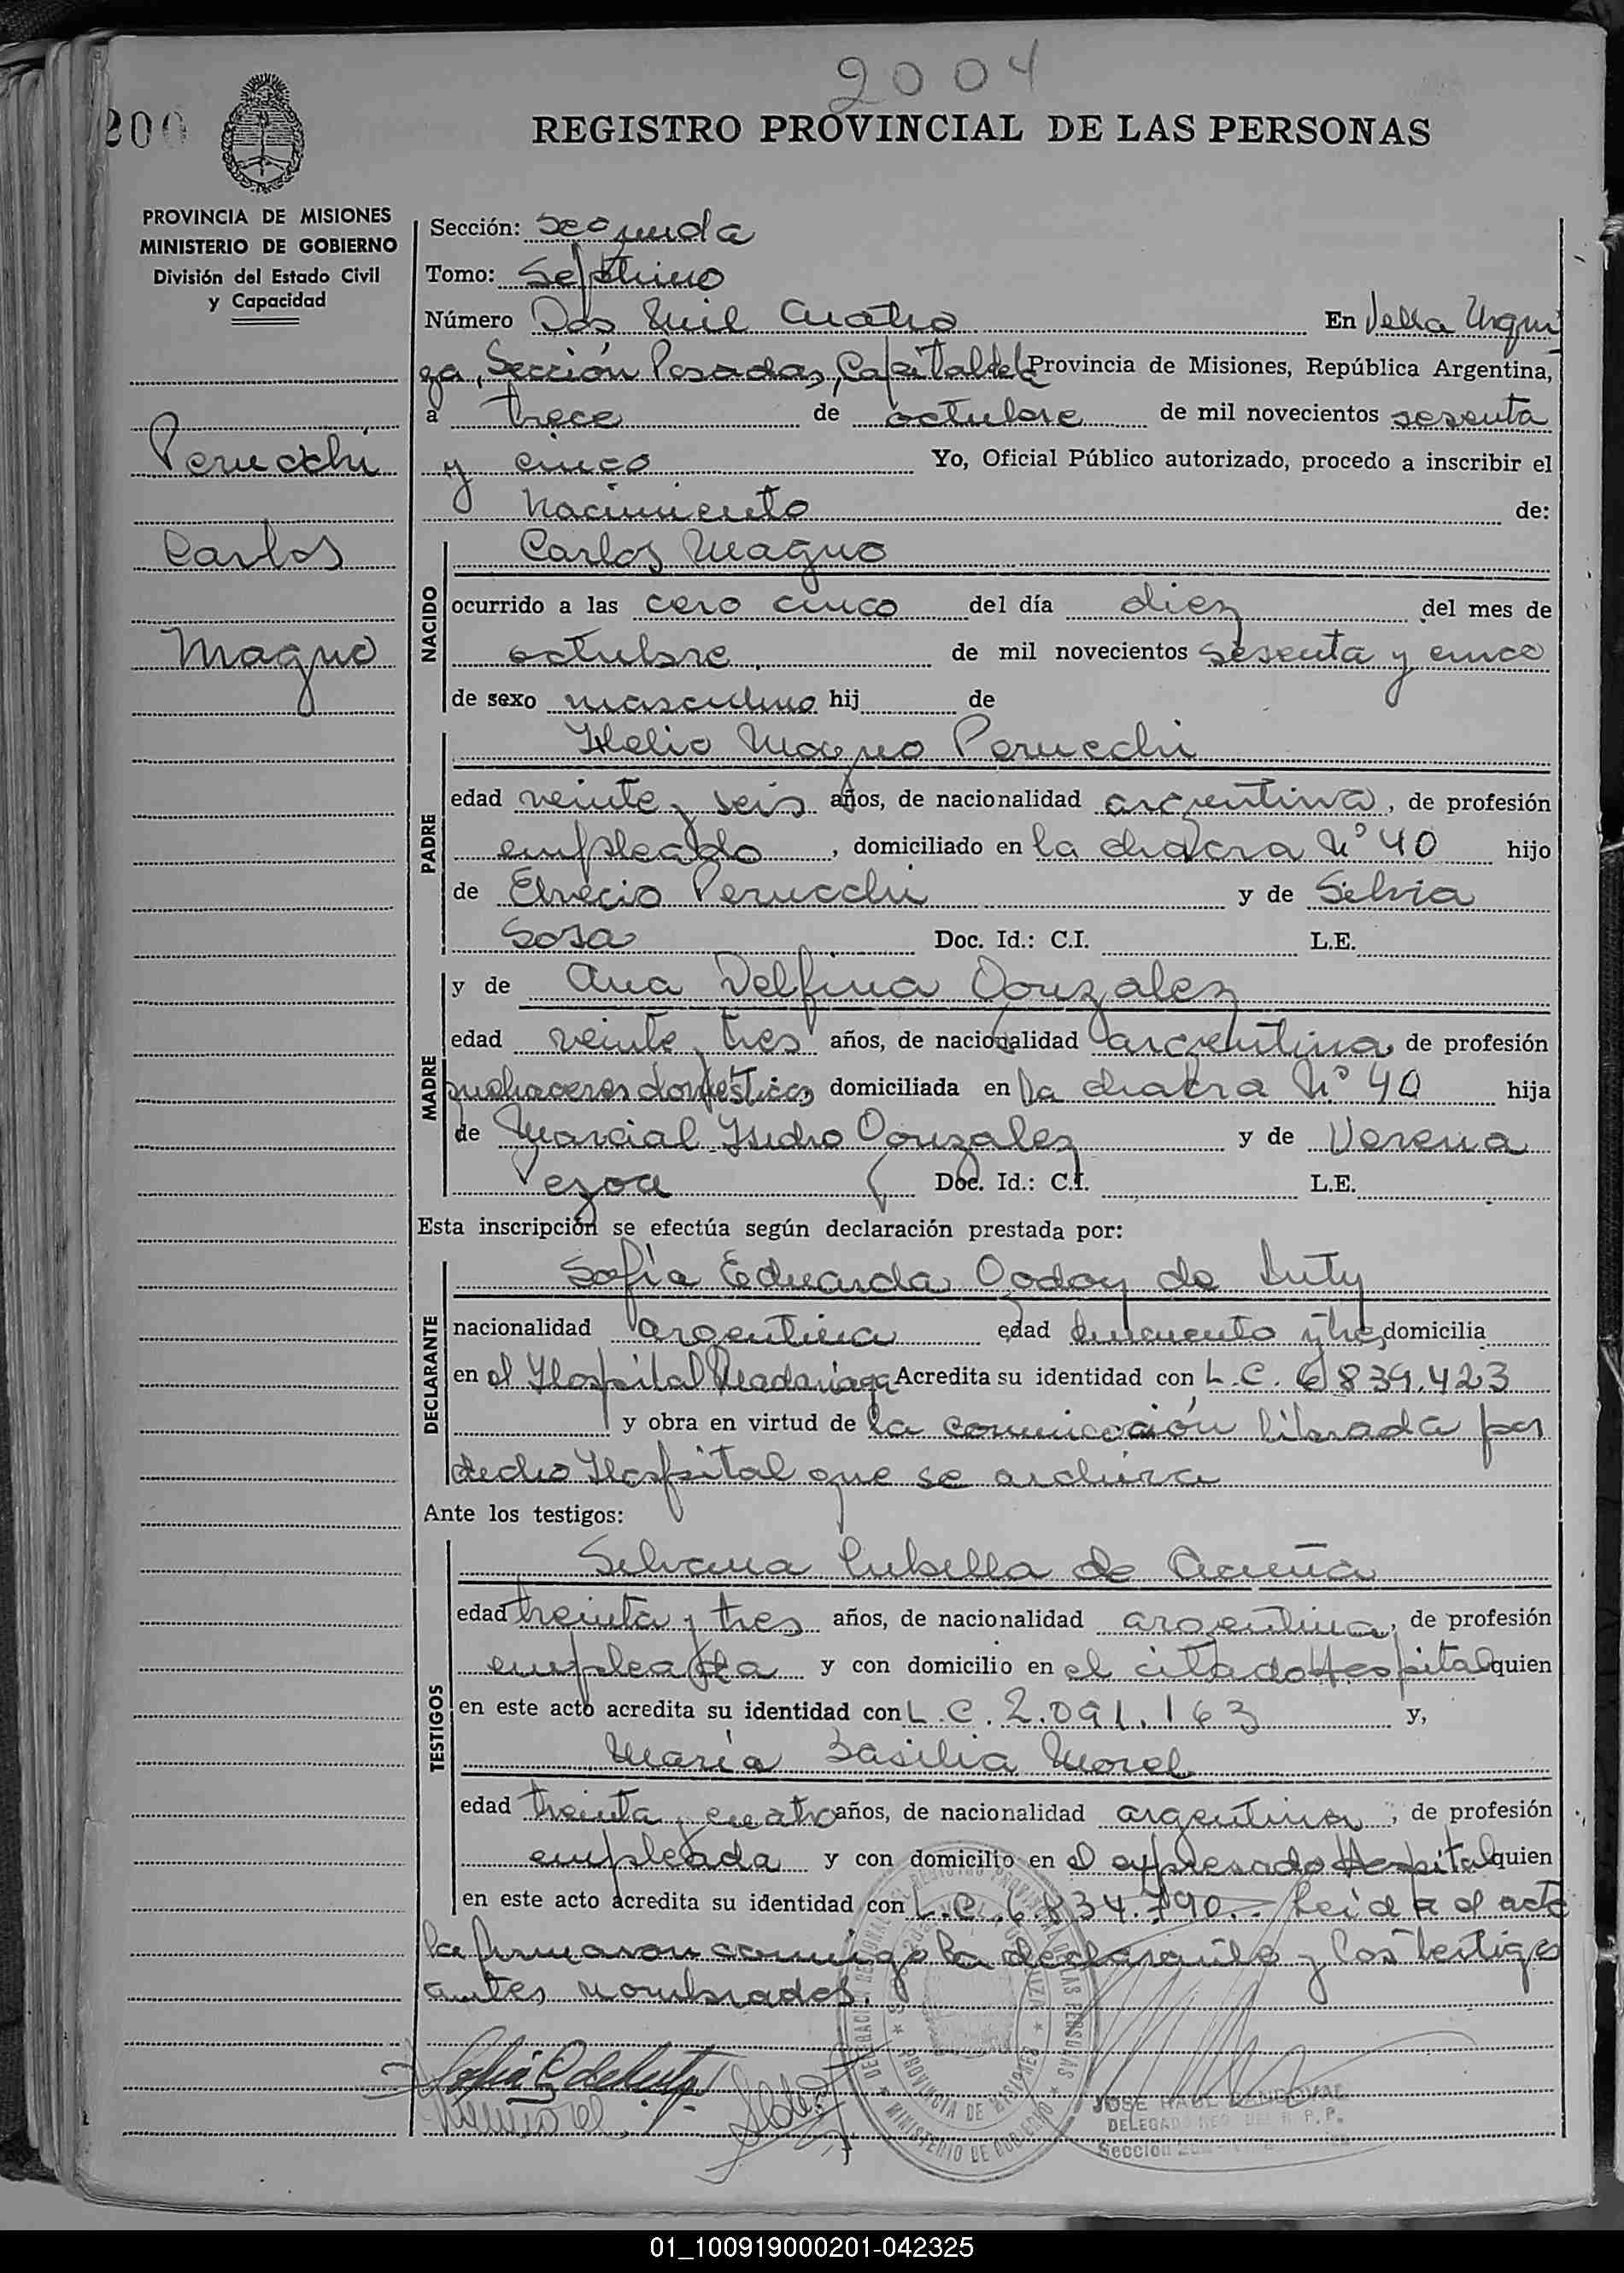 2004
200
REGISTRO PROVINCIAL DE LAS PERSONAS
PROVINCIA DE MISIONES
MINISTERIO DE GOBIERNO
División del Estado Civil
y Capacidad
Perucchi
Carlos
Magno
Sección: Segunda
Tomo: Septimo
Número Dos Mil Cuatro En Villa Urqui
za, Sección Posadas, Capital de la Provincia de Misiones, República Argentina,
a trece de octubre de mil novecientos sesenta
y cinco Yo, Oficial Público autorizado, procedo a inscribir el
Nacimiento de:
NACIDO
Carlos Magno
ocurrido a las cero cinco del día diez del mes de
octubre de mil novecientos sesenta y cinco
de sexo masculino hij de
PADRE
Helio Magno Perucchi
edad veinte y seis años, de nacionalidad argentina, de profesión
empleado, domiciliado en la chacra Nº 40 hijo
de Perucchi y de Silvia
Sosa Doc. Id.: C.I. L.E.
MADRE
y de Ana Delfina Gonzalez
edad veinte y tres años, de nacionalidad argentina, de profesión
quehaceres domésticos domiciliada en la chacra Nº 40 hija
de Marcial Isidro Gonzalez y de Verena
Pezoa Doc. Id.: C.I. L.E.
Esta inscripción se efectúa según declaración prestada por:
DECLARANTE
Sofía Eduarda Godoy de
nacionalidad argentina edad cincuenta y tres domicilia
en el Hospital Madariaga Acredita su identidad con L.C. 6.839.423
y obra en virtud de la comunicación librada por
dicho Hospital que se archiva
Ante los testigos:
TESTIGOS
Silvana Cubilla de Acuña
edad treinta y tres años, de nacionalidad argentina, de profesión
empleada y con domicilio en el citado Hospital quien
en este acto acredita su identidad con L.C. 2.091.163 y,
María Basilia Morel
edad treinta y cuatro años, de nacionalidad argentina, de profesión
empleada y con domicilio en el expresado Hospital quien
en este acto acredita su identidad con L.C. 6.834.790.- Leida el acta
la firmaron conmigo la declarante y los testigos
antes nombrados.
PROVINCIA DE MISIONES
MINISTERIO DE GOBIERNO
JOSE RAUL SANDOVAL
01_100919000201-042325